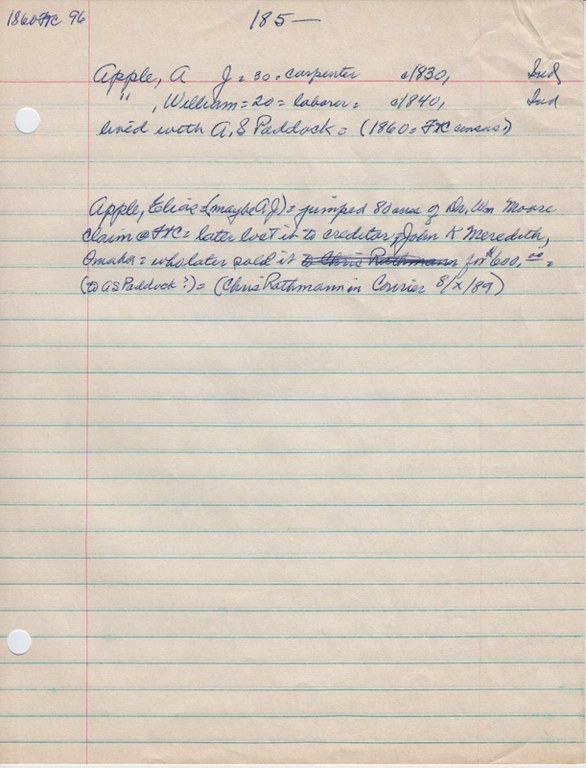 1860 FtC 96
185—
Apple, A J = 30 = carpenter c1830, Ind
" , William = 20 = laborer = c1840, Ind
lived with A,S Paddock = (1860 = FtC census?)
Apple, Elias (maybe A J) = jumped 80 acres of Dr, Wm Moore
claim @ FtC = later lost it to creditor, John K Meredith,
Omaha = who later sold it to Chris Rathmann for $600.00 =
(to AS Paddock?) = (Chris Rathmann in Courier 8/x/89)